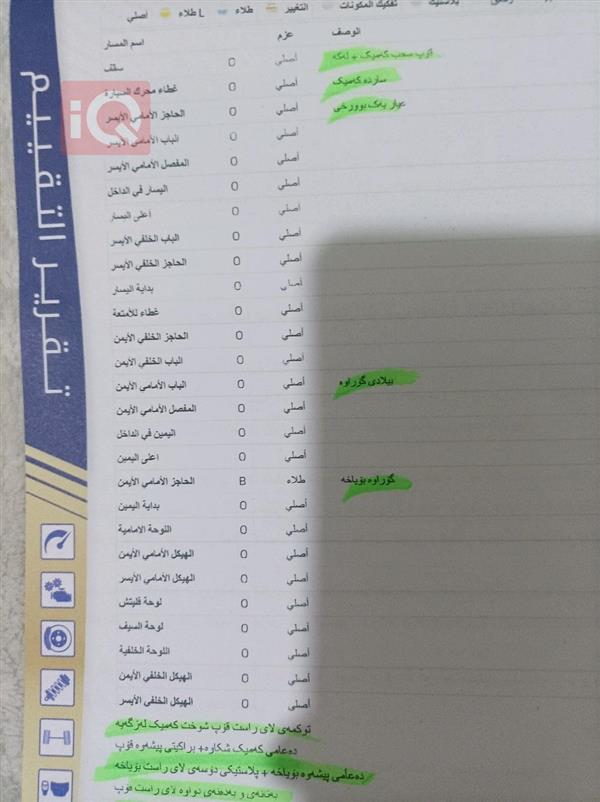 التغيير طلاء L طلاء أصلي
تفكيك المكونات
بلاستيك
اسم المسار عزم الوصف
سقف O أصلي قۆپ سحب کەمیک + لەکە
غطاء محرك السيارة O أصلي ساردە کەمیک
الحاجز الأمامي الأيسر O أصلي عیار یەک بوورخی
الباب الأمامي الأيسر O أصلي
المفصل الأمامي الأيسر O أصلي
اليسار في الداخل O أصلي
اعلى اليسار O أصلي
الباب الخلفي الأيسر O أصلي
الحاجز الخلفي الأيسر O أصلي
بداية اليسار O أصلي
غطاء للأمتعة O أصلي
الحاجز الخلفي الأيمن O أصلي
الباب الخلفي الأيمن O أصلي
الباب الأمامي الأيمن O أصلي بیلادی گۆراوە
المفصل الأمامي الأيمن O أصلي
اليمين في الداخل O أصلي
اعلى اليمين O أصلي
الحاجز الأمامي الأيمن B طلاء گۆراوە بۆیاخە
بداية اليمين O أصلي
اللوحة الامامية O أصلي
الهيكل الأمامي الأيمن O أصلي
الهيكل الأمامي الأيسر O أصلي
لوحة فليتش O أصلي
لوحة السيف O أصلي
اللوحة الخلفية O أصلي
الهيكل الخلفي الأيمن O أصلي
الهيكل الخلفي الأيسر O أصلي
توکمەی لای راست قۆپ شوخت کەمیک لەزگەیە
دەعامی کەمیک شکاوە+ براکیتی پیشەوە قۆپ
دەعامی پیشەوە بۆیاخە + پلاستیکی دۆسەی لای راست بۆیاخە
بەتانەی و بەدەنەی دواوە لای راست قۆپ
تـقـريـر التـقـيـيـم
iQ